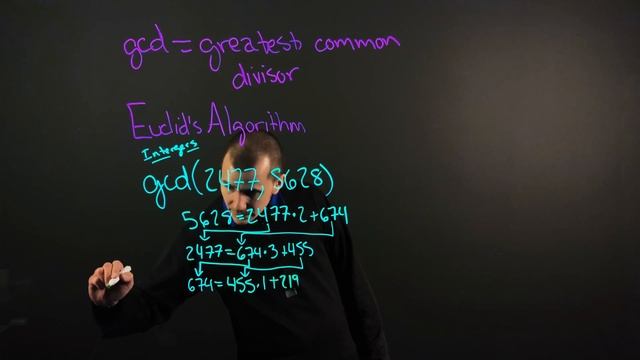 gcd = greatest common
divisor
Euclid's Algorithm
Intergers
gcd(2477, 5628)
5628=2477·2+674
2477=674·3+455
674=455·1+219